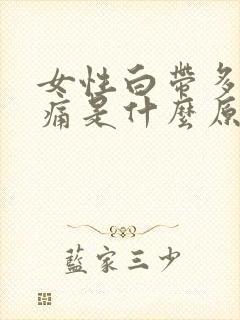 女性白帶多
痛是什麼原
藍家三少